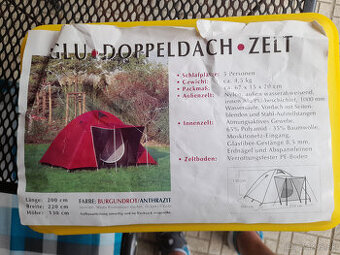 GLU • DOPPELDACH • ZELT
• Schlafplätze: 3 Personen
• Gewicht: ca. 4,5 kg
• Packmaß: ca. 67 x 15 x 20 cm
• Außenzelt: Nylon, außen wasserabweisend,
innen Alu/PU beschichtet, 1000 mm
Wassersäule. Vorteil zu
blenden und Stahl-Aufstellstangen
• Innenzelt: Atmungsaktives Gewebe
65% Polyamid / 35% Baumwolle,
Moskitonetz-Eingang,
Glasfiber-Gestänge 8,5 mm,
Erdnägel und Abspannleinen
• Zeltboden: Verrottungsfester PE-Boden
Länge: 200 cm
Breite: 220 cm
Höhe: 130 cm
FARBE: BURGUNDROT/ANTHRAZIT